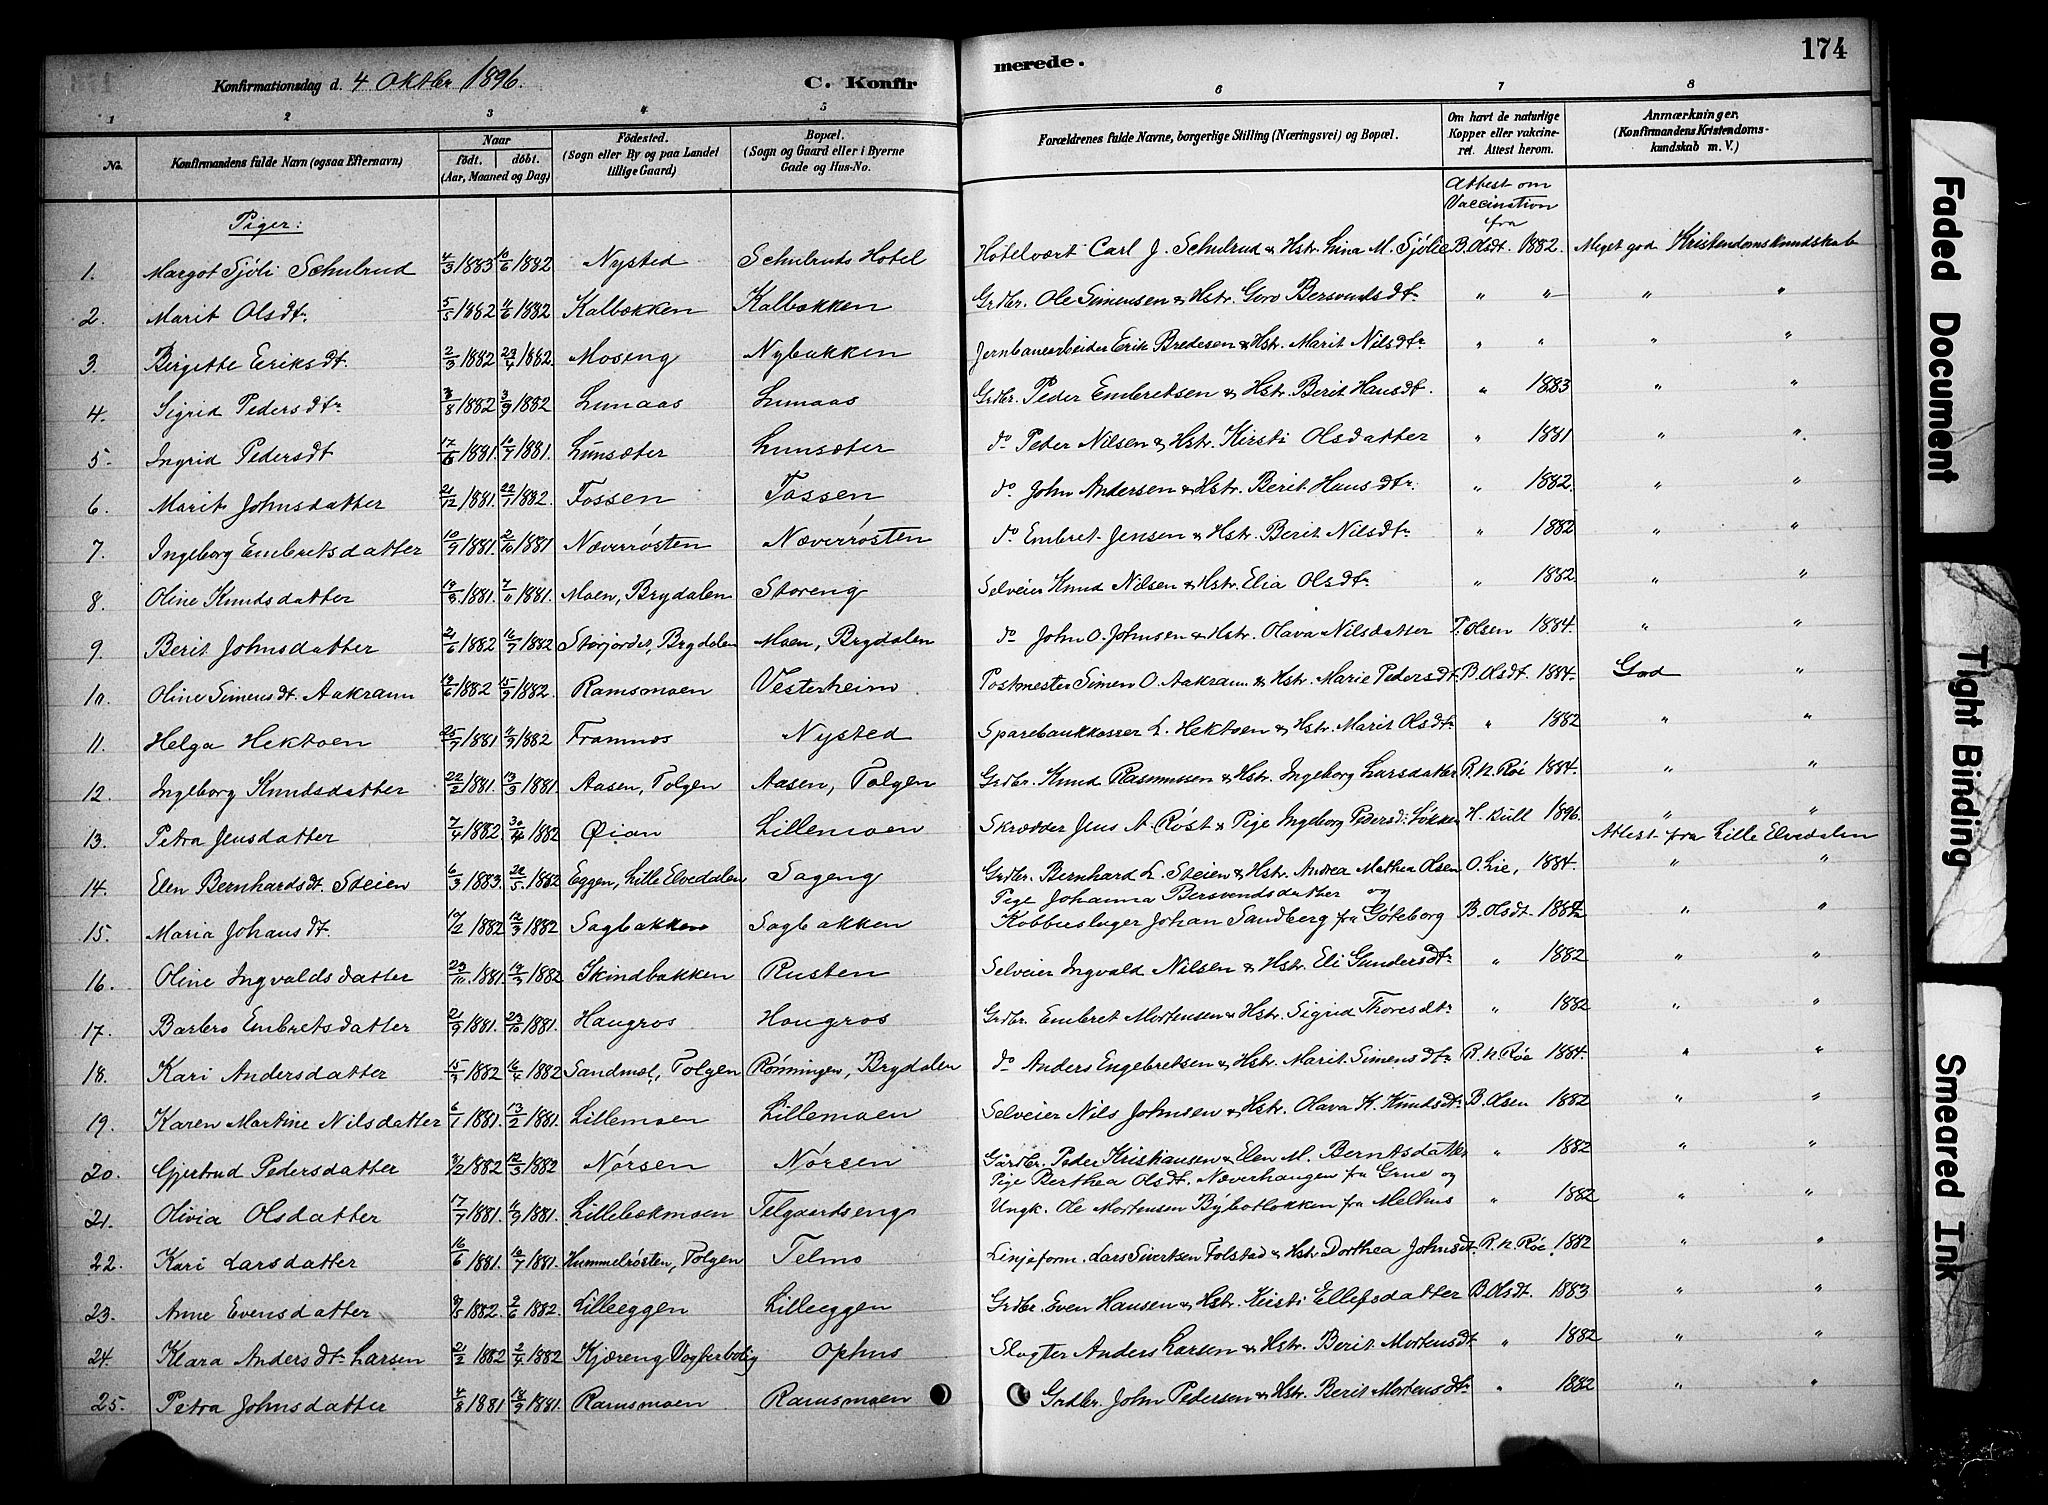 174
Konfirmationsdag d. 4 Oktbr 1896. C. Konfirmerede.
1 2 3 4 5 6 7 8
No. Konfirmandens fulde Navn (ogsaa Efternavn) Naar født. døbt. (Aar, Maaned og Dag) Fødested. (Sogn eller By og paa Landet tillige Gaard) Bopæl. (Sogn og Gaard eller i Byerne Gade og Hus-No. Forældrenes fulde Navne, borgerlige Stilling (Næringsvei) og Bopæl. Om havt de naturlige Kopper eller vakcineret. Attest herom. Anmærkninger. (Konfirmandens Kristendomskundskab m. V.)
Attest om Vaccination fra
Piger:
1. Margot Sjøli Schulrud 4/3 1883 10/6 1882 Nysted Schulruds Hotel Hotelvært Carl J. Schulrud & Hstr. Lina M. Sjølie B. Olsdt. 1882. Meget god Kristendomskundskab
2. Marit Olsdtr. 5/5 1882 11/6 1882 Kalbækken Kalbækken Grdbr. Ole Simensen & Hstr. Goro Bersvendsdtr. " " " "
3. Birgitte Eriksdt. 2/3 1882 23/4 1882. Moseng Nybakken Jernbanearbeider Erik Bredesen & Hstr. Marit Nilsdtr. " " " "
4. Sigrid Pedersdtr. 3/8 1882 3/9 1882 Lunaas Lunaas Grdbr. Peder Embretsen & Hstr. Berit Hansdt. " 1883 " "
5. Ingrid Pedersdt 17/6 1881. 10/7 1881. Lunsæter Lunsæter do Peder Nilsen & Hstr. Kirsti Olsdatter " 1881 " "
6. Marit Johnsdatter 21/12 1881. 22/1 1882. Fossen Fossen do John Andersen & Hstr. Berit Hansdtr. " 1882. " "
7. Ingeborg Embretsdatter 10/9 1881. 2/10 1881 Næverrøsten Næverrøsten do Embret Jensen & Hstr. Berit Nilsdtr. " 1882 " "
8. Oline Knudsdatter 1881. 1881. Moen, Brydalen Storeng Selveier Knud Nilsen & Hstr. Elia Olsdtr. " 1882 " "
9. Berit Johnsdatter 21/6 1882 16/7 1882 Storjordet, Brydalen Moen, Brydalen do John O. Johnsen & Hstr. Olava Nilsdatter P. Olsen 1884. " "
10. Oline Simensdt. Aakrann 1882 1882. Ramsmoen Vesterheim Postmester Simen O. Aakrann & Hstr. Marie Pedersdt. B. Olsdt. 1884. God "
11. Helga Hektoen 1881 1882 Framnes Nysted Sparebankkasser L. Hektoen & Hstr. Marit Olsdtr. " 1882 " "
12. Ingeborg Knudsdatter 22/2 1881. 13/3 1881. Aasen, Tolgen Aasen, Tolgen Grdbr. Knud Rasmussen & Hstr. Ingeborg Larsdatter R. N. Røe 1884. " "
13. Petra Jensdatter 7/4 1882 30/4 1882 Øian Lillemoen Skrædder Jens A. Røst & Pige Ingeborg Pedersdt. Løkken H. Bull 1896. " "
Attest fra Lille Elvedalen
14. Elen Bernhardsdt. Steien 6/3 1883. 1882 Eggen, Lille Elvedalen Sageng Grdbr. Bernhard L. Steien & Hstr. Andrea Mathea Olsen O. Lie, 1884. " "
Pige Johanna Bersvendsdatter og
15. Maria Johansdt. 1882 12/3 1882 Sagbakken Sagbakken Kobberslager Johan Sandberg fra Göteborg B. Olsdt. 1882 " "
16. Oline Ingvaldsdatter 1881. 1882 Skindbakken Rusten Selveier Ingvald Nilsen & Hstr. Eli Gundersdtr. " 1882 " "
17. Barbro Embretsdatter 21/9 1881. 23/10 1881. Haugros Haugros Grdbr. Embret Mortensen & Hstr. Sigrid Thoresdtr. " 1882 " "
18. Kari Andersdatter 15/3 1882 16/4 1882 Sandmol, Tolgen Rønningen, Brydalen do Anders Engebretsen & Hstr. Marit Simensdtr. R. N. Røe 1884. " "
19. Karen Martine Nilsdatter 6/1 1881. 13/2 1881. Lillemoen Lillemoen Selveier Nils Johnsen & Hstr. Olava K. Knudsdtr. B. Olsen 1882 " "
20. Gjertrud Pedersdatter 1882 12/3 1882 Nørsen Nørsen Gårdbr. Peder Kristiansen & Elen M. Berntsdatter " 1882 " "
Pige Berthea Olsdt. Næverhaugen fra Grue og
21. Olivia Olsdatter 17/7 1881. 11/9 1881. Lillebækmoen Telgaardseng Ungk. Ole Mortensen Bybotløkken fra Melhus " 1882 " "
22. Kari Larsdatter 16/6 1881. 10/7 1881. Hummelrøsten, Tolgen Telmo Linjeform. Lars Sivertsen Folstad & Hstr Dorthea Johnsdt. R. N. Røe. 1882 " "
23. Anne Evensdatter 1882. 2/6 1882. Lilleeggen Lilleeggen Grdbr. Even Hansen & Hstr. Kirsti Ellefsdatter B. Olsdt. 1883 " "
24. Klara Andersdtr. Larsen 21/2 1882 2/4 1882 Kjæreng Vogterbolig Ophus Slagter Anders Larsen & Hstr. Berit Mortensdt. " 1882 " "
25. Petra Johnsdatter 4/8 1881 18/9 1881. Ramsmoen Ramsmoen Grdbr. John Pedersen & Hstr. Berit Mortensdtr. " 1882 " "
Faded Document
Tight Binding
Smeared Ink